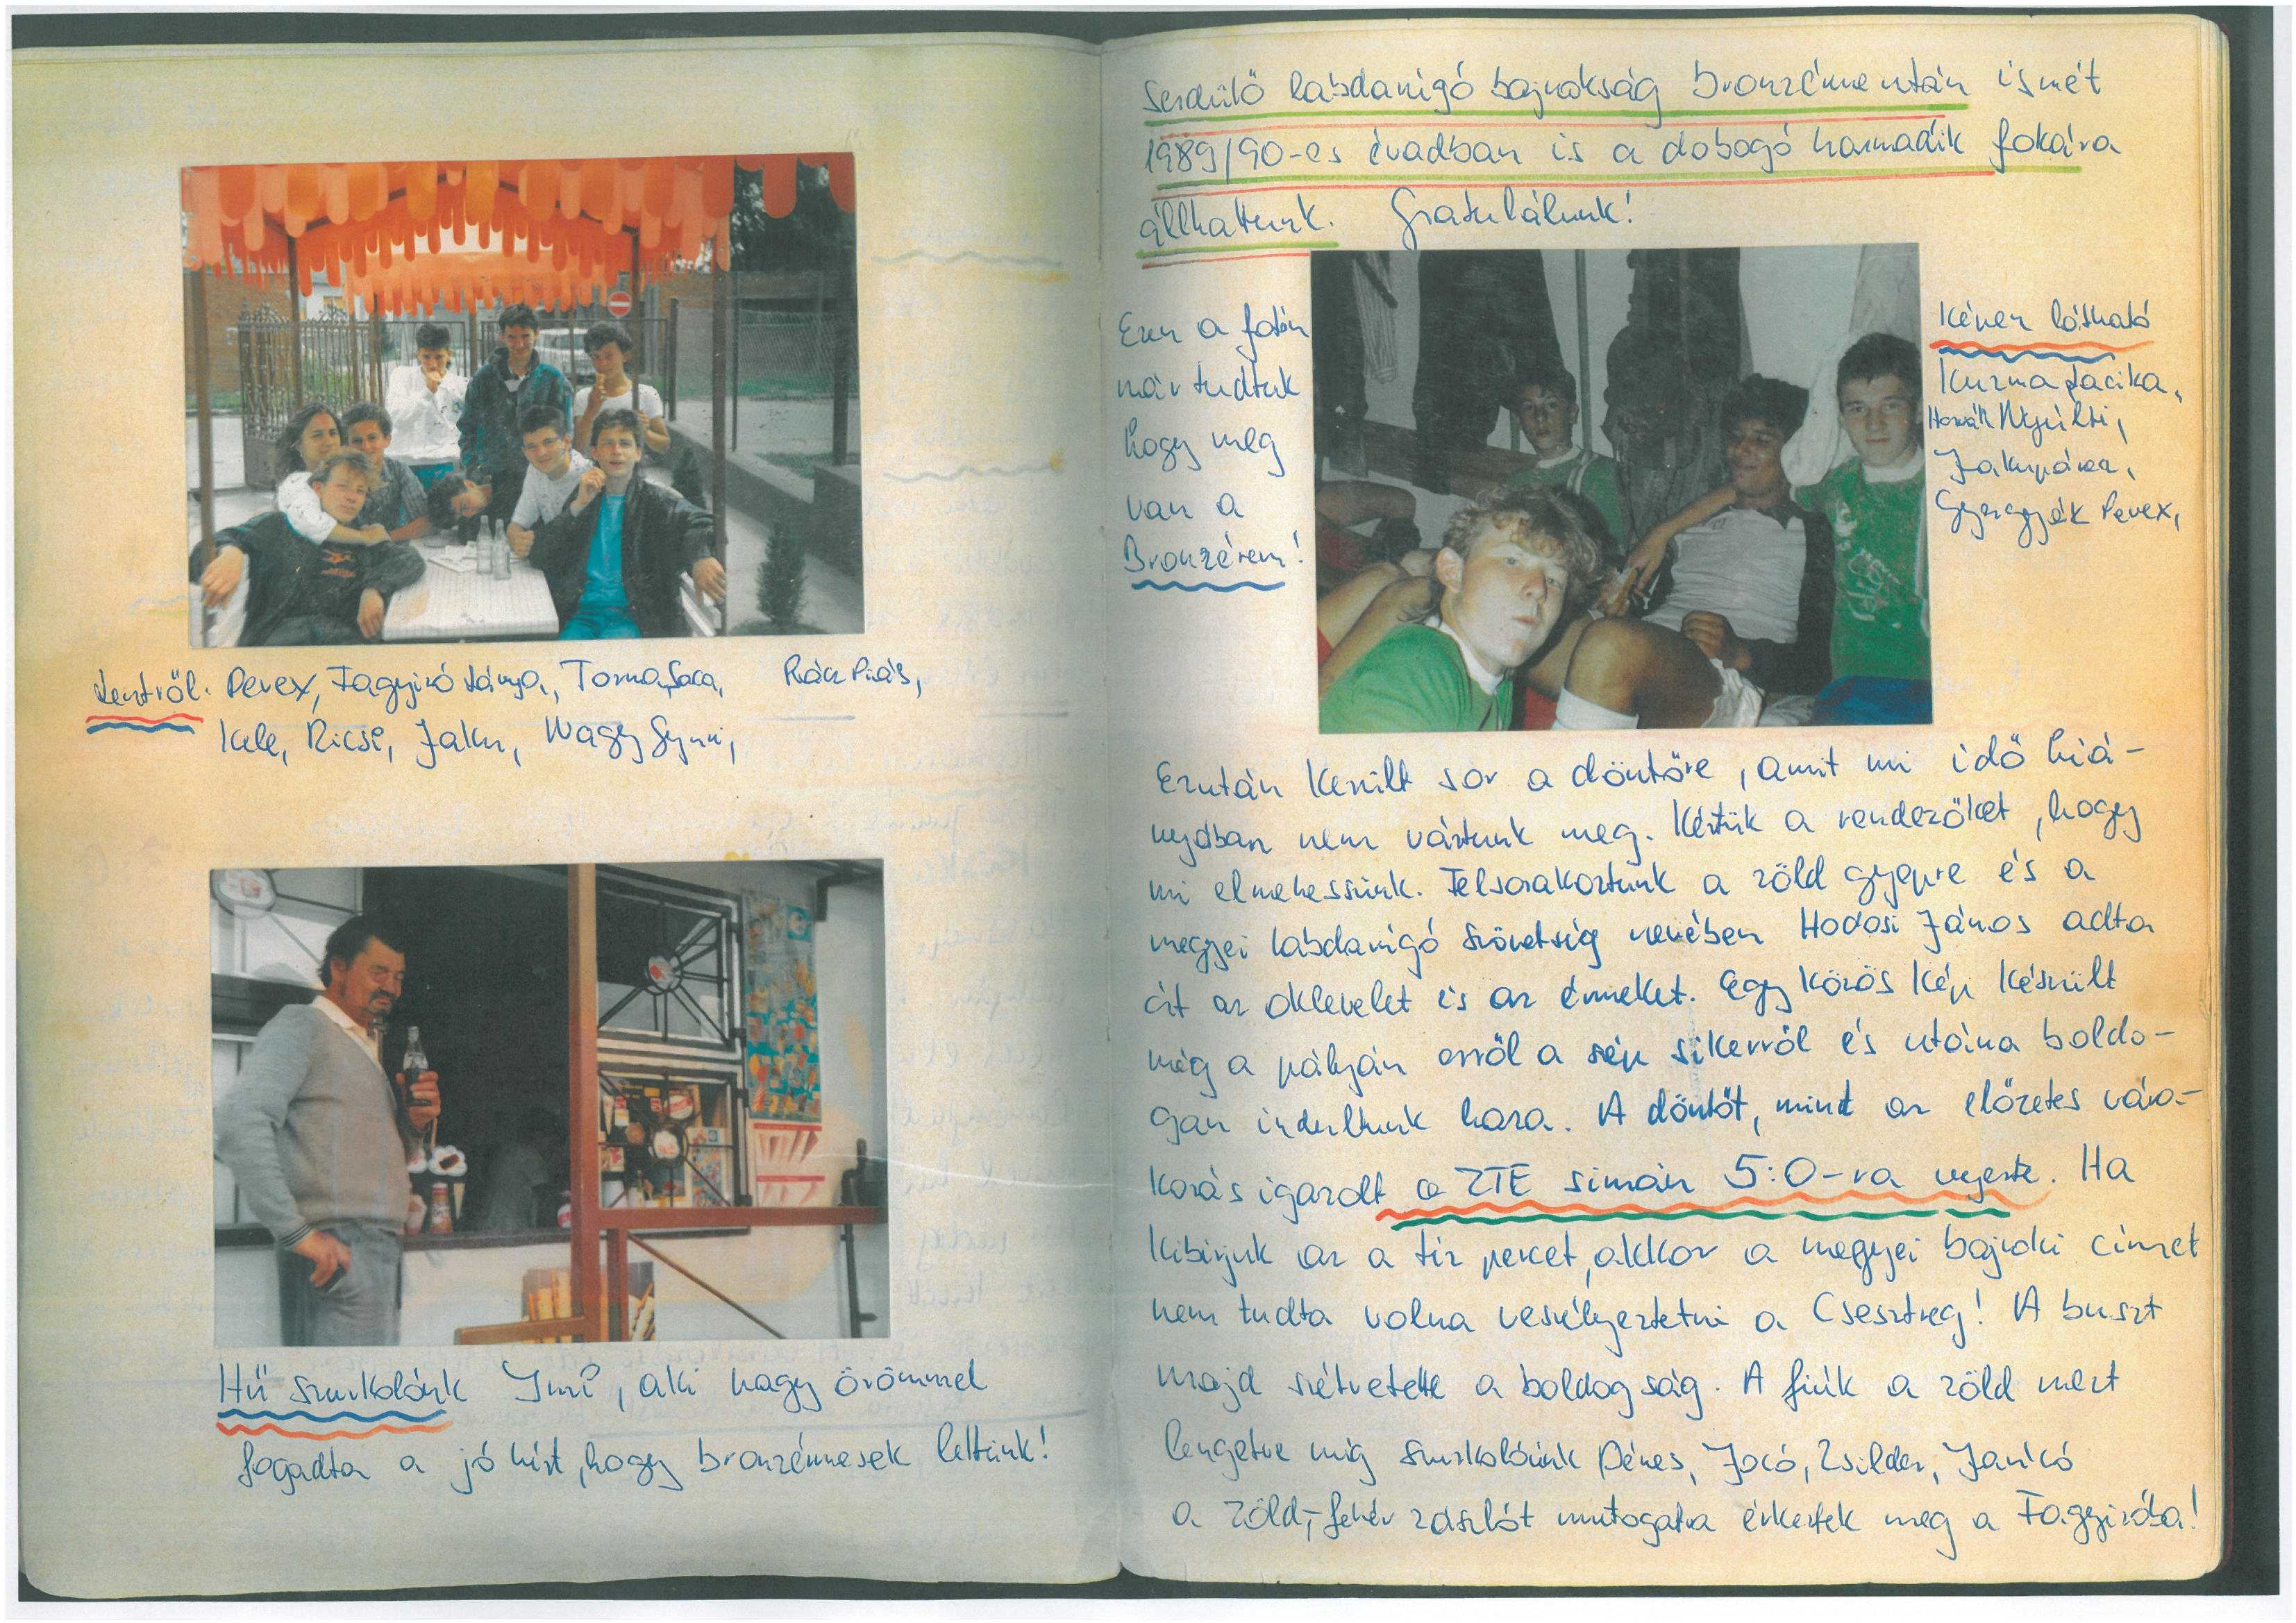 Lentről: Pevex, Fagyizó lánya, Toma Saca, Rácz Piás,
Kele, Ricsi, Jaku, Nagy Gyuri,
Hű szurkolónk Imi, aki nagy örömmel
fogadta a jó hírt, hogy bronzérmesek lettünk!
Serdülő labdarúgó bajnokság bronzérme után ismét
1989/90-es évadban is a dobogó harmadik fokára
állhattunk. Gratulálunk!
Ezen a fotón
már tudtuk
hogy meg
van a
Bronzérem!
Képen látható
Kuzma Lacika,
Horváth Nyúlti,
Jakupánca,
Gyergyák Pevex,
Ezután került sor a döntőre, amit mi idő hiá-
nyában nem vártunk meg. Kértük a rendezőket, hogy
mi elmehessünk. Felsorakoztunk a zöld gyepre és a
megyei labdarúgó szövetség nevében Hodosi János adta
át az oklevelet és az érmeket. Egy közös kép készült
még a pályán erről a szép sikerről és utána boldo-
gan indultunk haza. A döntőt, mint az előzetes vára-
kozás igazolt a ZTE simán 5:0-ra nyerte. Ha
kibírjuk az a tíz percet, akkor a megyei bajnoki címet
nem tudta volna veszélyeztetni a Csesztreg! A buszt
majd szétvetette a boldogság. A fiúk a zöld mezt
lengetve míg szurkolóink Dénes, Jocó, Zsilder, Janikó
a zöld-fehér zászlót mutogatva érkeztek meg a Fagyizóba!